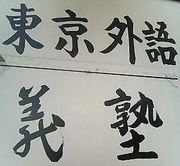 東京外語
義塾